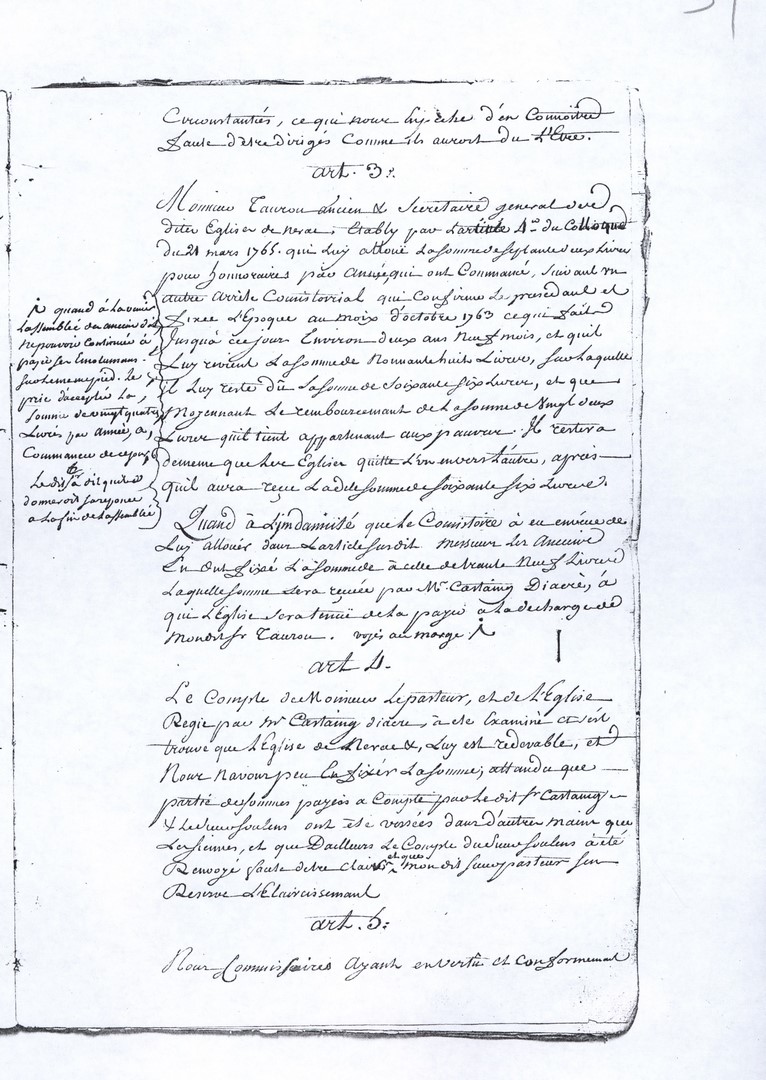 Circonstantiés, ce qui nous Empêche d'en Connoitre
faute d'etre dirigés Comme ils auroit du L'Etre.
art. 3e.
Monsieur Taurou ancien & Secretaire general des
dites Eglises de Nerac, Etably par L'article 4me du Colloque
du 21 mars 1765. qui Luy alloue La somme de septante deux Livres
pour honnoraires par Année qui ont Commancé, suivant un
autre Arrêté Consistorial qui Confirme Le precedant et
fixée L'Epoque au moix d'octobre 1763 ce qui fait
Jusqu'à ce jour Environ deux ans Neuf mois, et qu'il
Luy revient La somme de Nonnante huit Livres, sur Laquelle
il Luy reste dû La somme de soixante six Livres, et que
Moyennant Le remboursement de La somme de Vingt deux
Livres qu'il tient appartenant aux pauvres. Il restera
de meme que Les Eglises quitte L'un envers L'autre, après
qu'il aura reçu La de somme de soixante six Livres.
Quand à L'indamnité que Le Consistoire à eu envie de
Luy allouër dans L'article susdit Messieurs Les Anciens
L'n ont fixé La somme à celle de trante Neuf Livres
Laquelle somme sera reçuée par Mr. Castaing Diacre, à
qui L'Eglise sera tenüe de La payer a La decharge de
Mondit sr Taurou. voyés au marge
quand à L'avenir
L'assemblée des anciens dit
Ne pouvoir continuer à
payer ses Emolumens.
sur Le meme pied. Le
prie d'accepter La
somme de vingt quatre
Livres par année, à
Commancer de ce jour
Le dit à dit qu'il
donneroit sa reponce
a La fin de L'assemblée
art 4.
Le Compte de Monsieur Le pasteur, et de L'Eglise
Regie par Mr Castaing diacre, à eté Examiné et s'est
trouvé que L'Eglise de Nerac &, Luy est redevable, et
Nous n'avons peu En fixér La somme, attandu que
partie des sommes payées a Compte par Le dit sr Castaing
& Le sieur Soulens ont été versées dans d'autres mains que
Les siennes, et que D'ailleurs Le Compte du sieur Soulens à été
Renvoyé faute d'etre Clair, et que mon dit sieur pasteur s'en
Reserve L'Eclaircissement
art. 5.
Nous Commissaires Ayant en vertû et Conformement